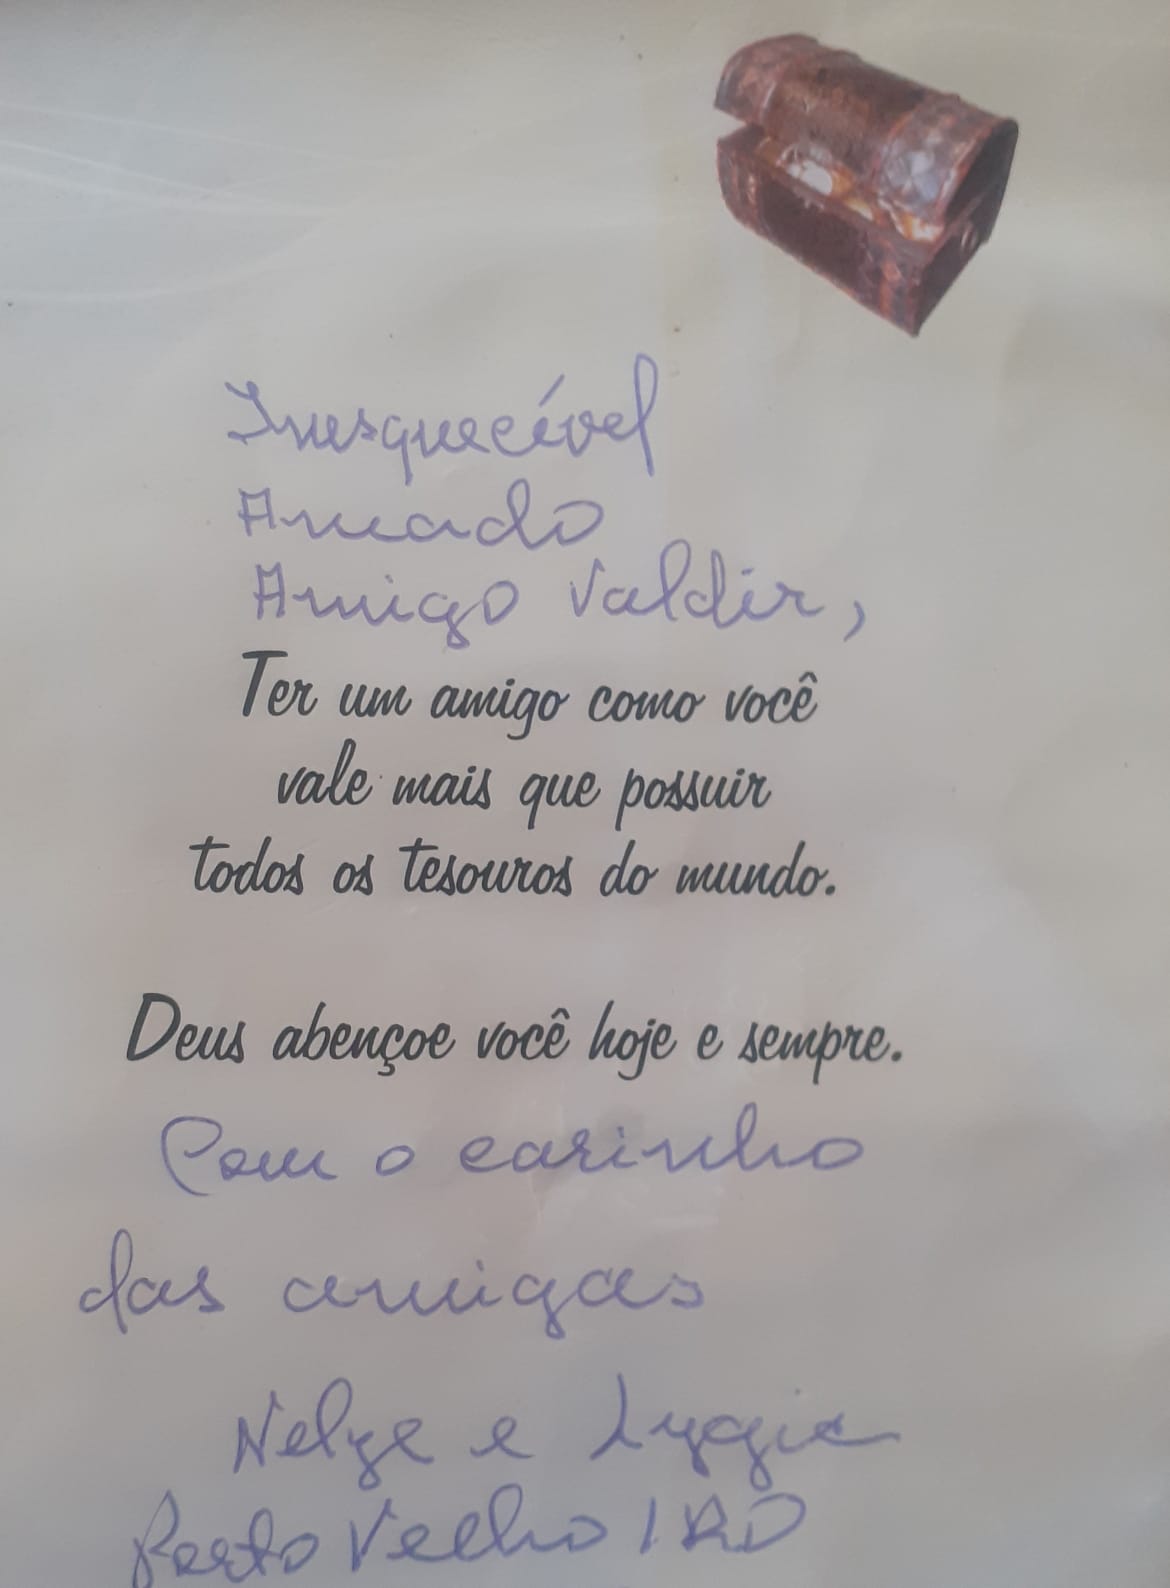 Inesquecível
Amado
Amigo Valdir,
Ter um amigo como você
vale mais que possuir
todos os tesouros do mundo.
Deus abençoe você hoje e sempre.
Com o carinho
das amigas
Nelze e Lyggia
Porto Velho/RO